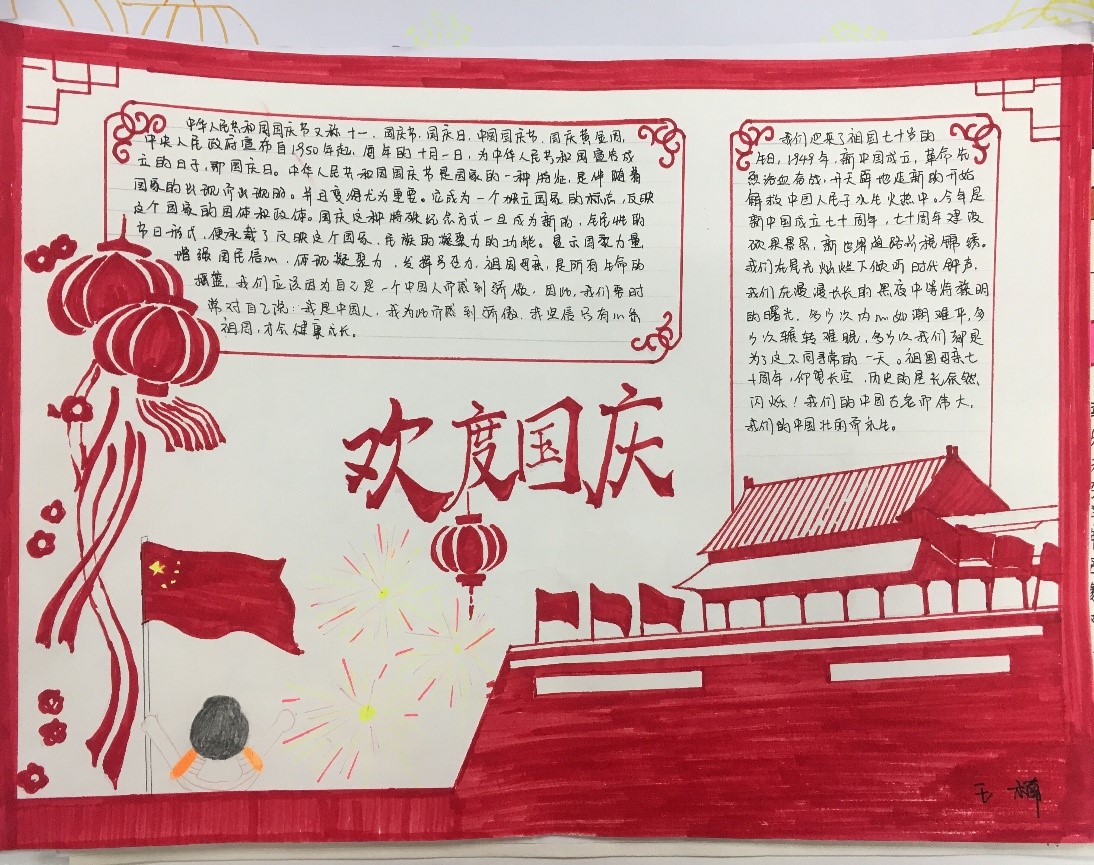 中华人民共和国国庆节又称十一、国庆节、国庆日、中国国庆节、国庆黄金周。
中央人民政府宣布自1950年起,每年的十月一日,为中华人民共和国宣告成
立的日子,即国庆日。中华人民共和国国庆节是国家的一种特征,是伴随着
国家的出现而出现的。并且变得尤为重要。它成为一个独立国家的标志,反映
这个国家的国体和政体。国庆这种特殊纪念方式一旦成为新的、全民性的
节日形式,便承载了反映这个国家、民族的凝聚力的功能。显示国家力量、
增强国民信心,体现凝聚力,发挥号召力,祖国母亲,是所有生命的
摇篮,我们应该因为自己是一个中国人而感到骄傲。因此,我们要时
常对自己说:我是中国人,我为此而感到骄傲。我坚信只有心系
祖国,才会健康成长。
我们迎来了祖国七十岁的
生日,1949年,新中国成立,革命先
烈浴血奋战,开天辟地是新的开始
解救中国人民于水生火热中。今年是
新中国成立七十周年,七十周年建设
硕果累累,新世界道路前程锦绣。
我们在星光灿烂下倾听时代钟声,
我们在漫漫长长的黑夜中等待黎明
的曙光,多少次内心如潮难平,多
少次辗转难眠,多少次我们都是
为了这不同寻常的一天。祖国母亲七
十周年,仰望长空,历史的星光依然
闪烁!我们的中国古老而伟大,
我们的中国壮丽而永生。
欢度国庆
王楠